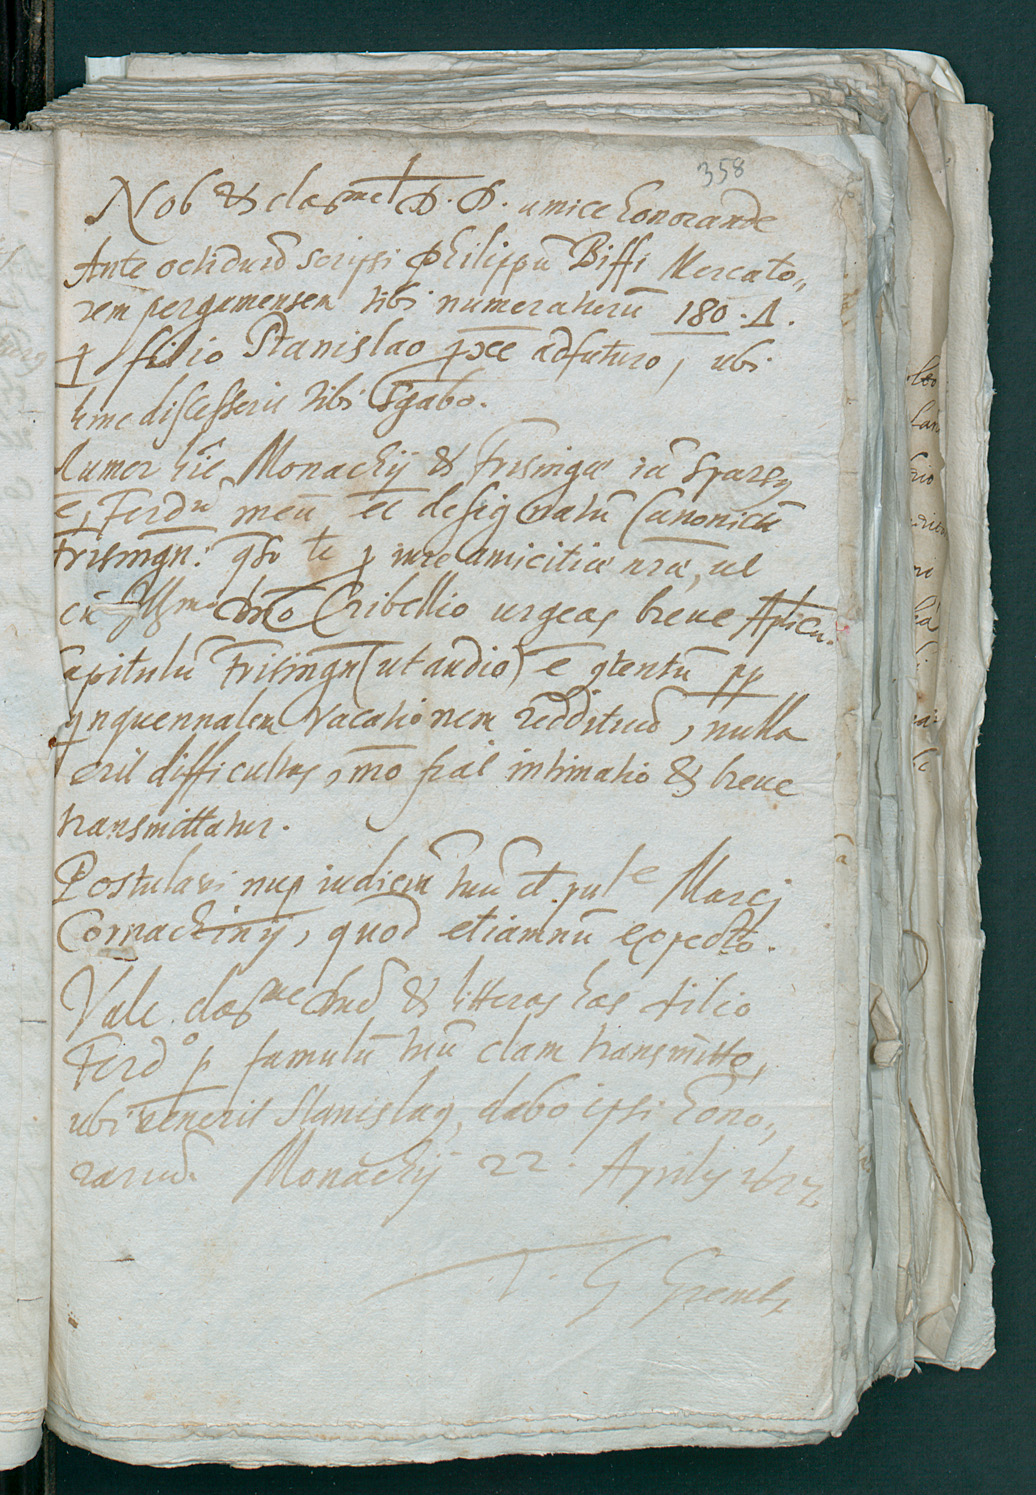 358
Nob & clarmet D. D. amice honorande
Ante octiduū scripsi Philippū Biffi Mercato„
rem pergamensem tibi numeraturū 180 . Δ.
ꝑ filio Stanislao adfuturo, ubi
hinc discesserit tibi scribo.
Rumor hīc Monachij & Frisingæ iā spars9
ē, Ferdu meū ēē designatū Canonicū
Frisingn: qso te ꝑ iure amicitiæ nrā, ut
cū Illmo Dno Cribellio urgeas breve Aplicu.
Capitulū Frisingn (ut audio) ē gtentū pp
qnquennalem vacationem , nulla
erit difficultas, mo fiat intimatio & breve
transmittatur.
Postulavi nup iudiciū tuū d. pul Marci
Cornachinij, quod etiamnū expecto.
Vale clarme Dne & litteras has filio
Ferdo ꝑ famulū tuū clam transmitto,
ubi venerit Stanisla9, dabo ipsi hono„
rariū. Monachij 22. Aprilis
T. G